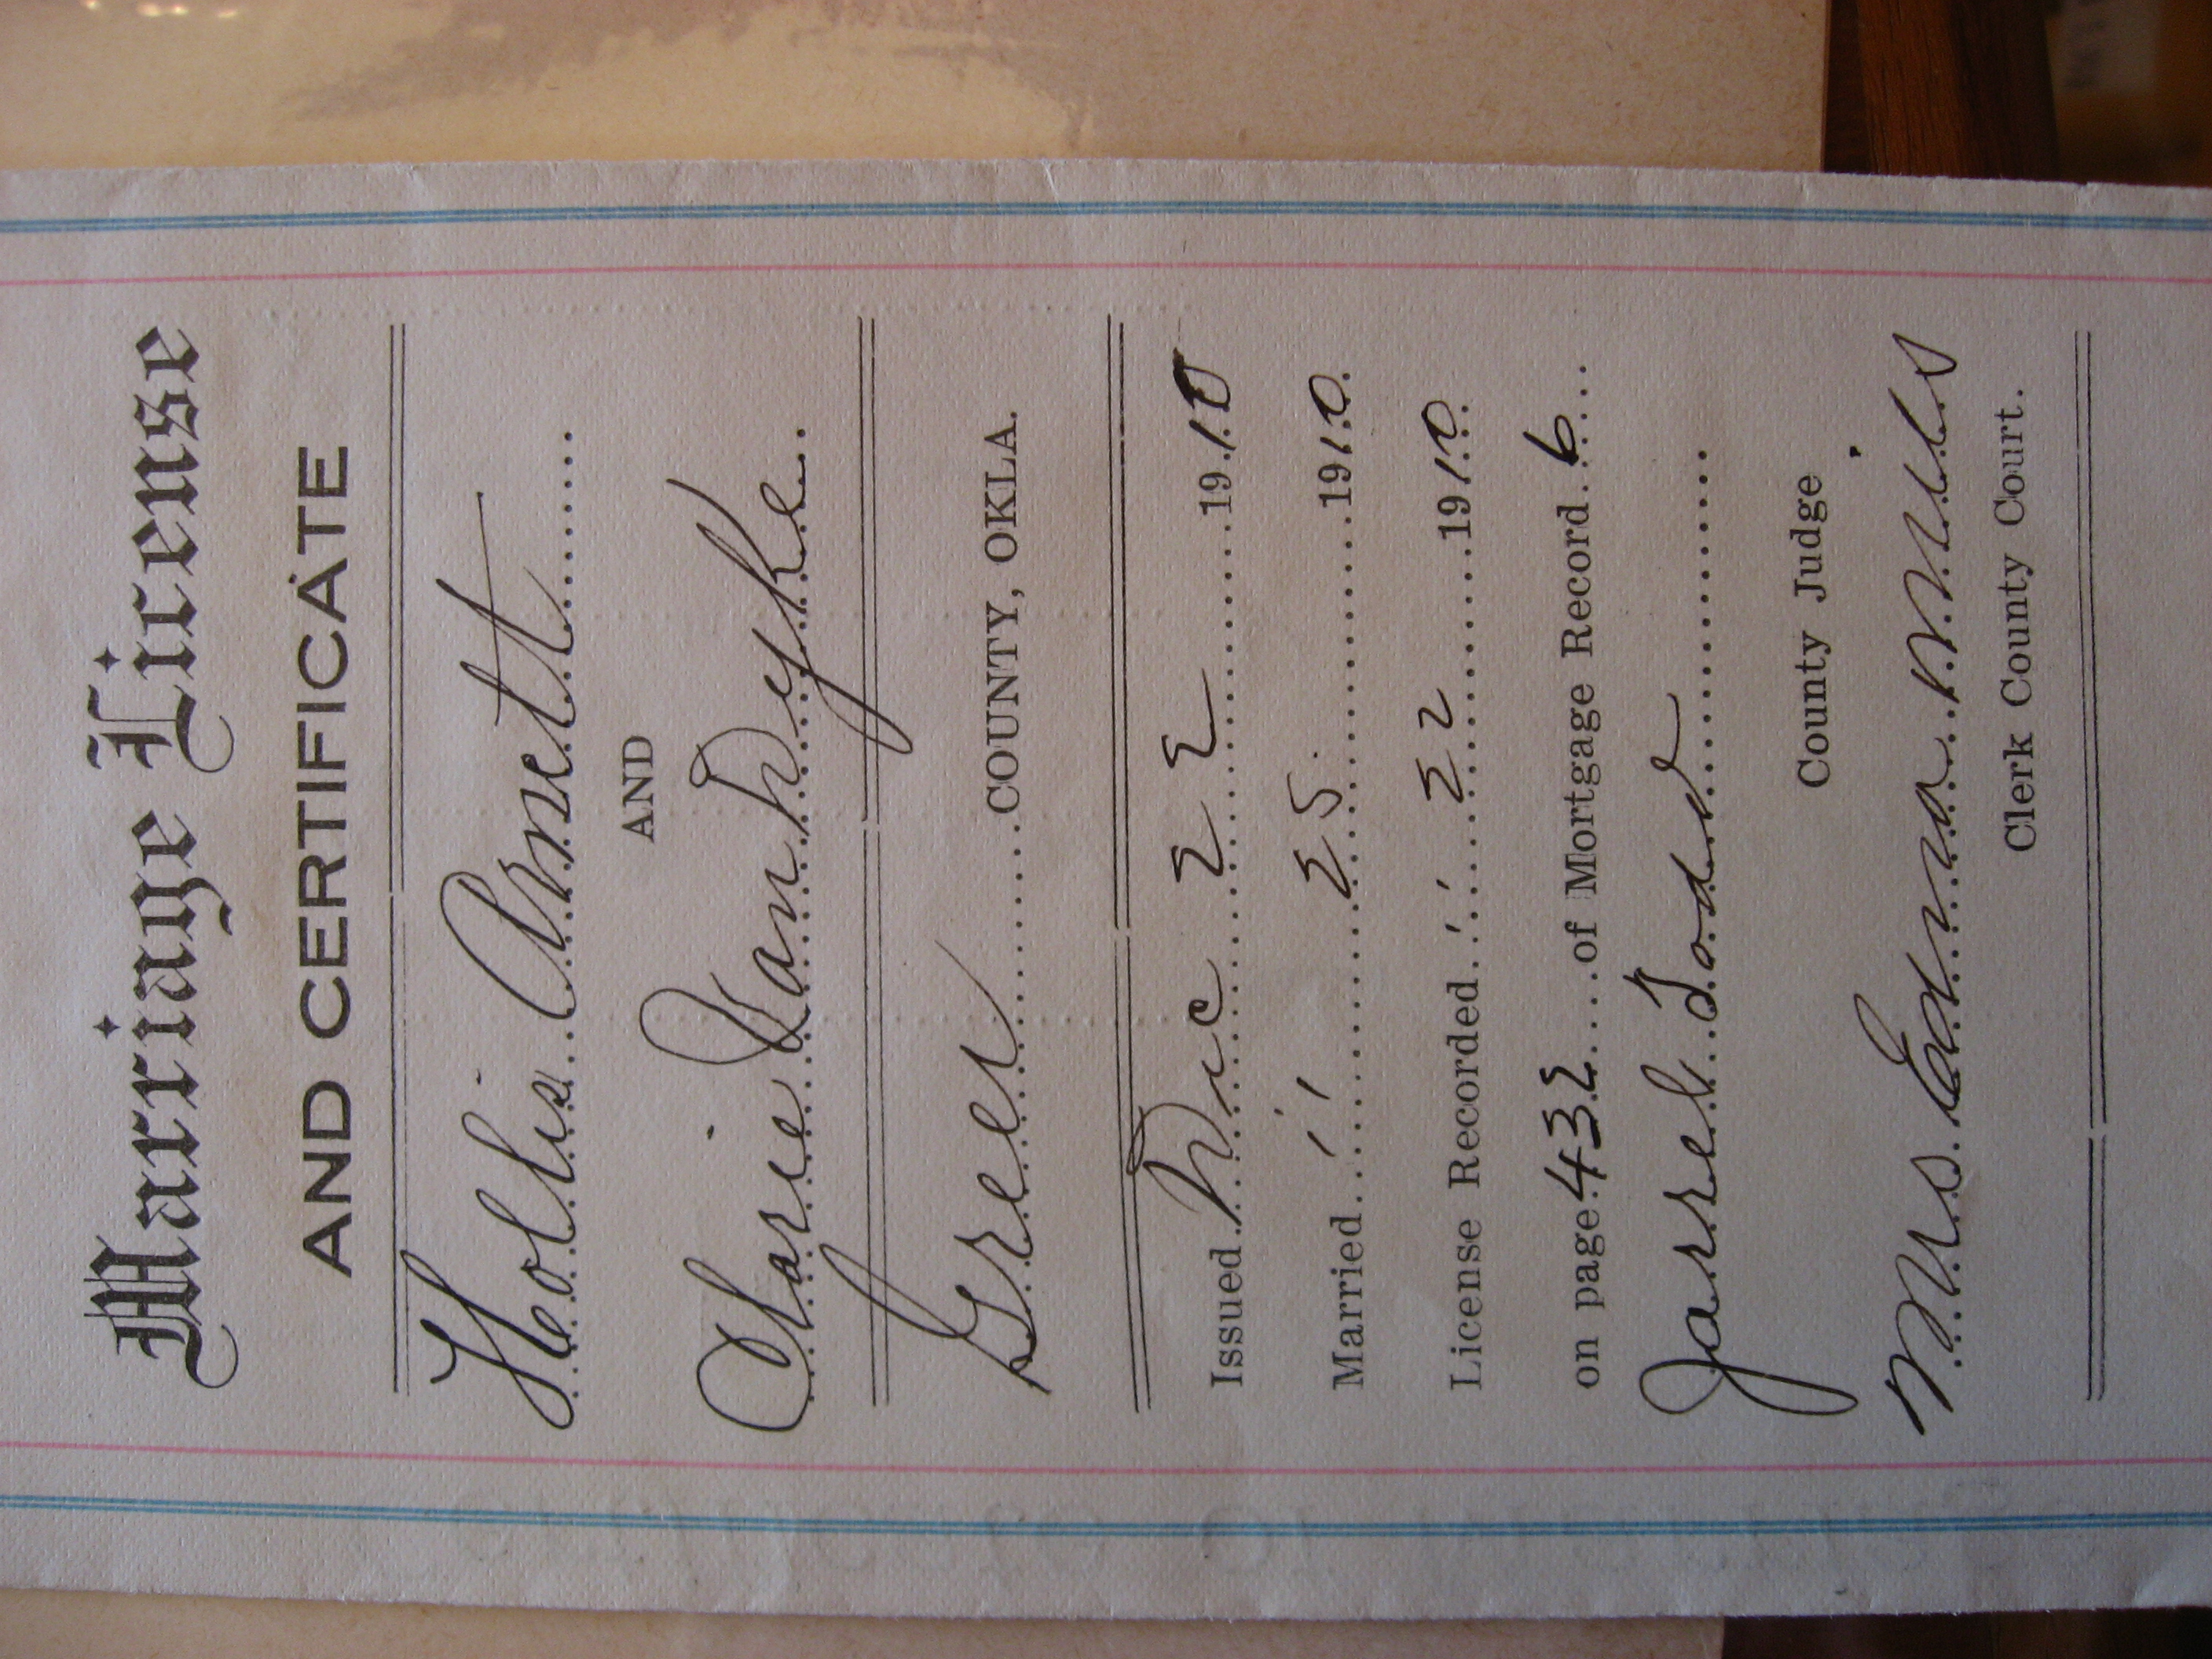 Marriage License
AND CERTIFICATE
Hollis Arnett
AND
Clarie Van Dyke
Greer COUNTY, OKLA.
Issued Dec 22 1910
Married " 25 1910
License Recorded " 22 1910
on page 432 of Mortgage Record 6
Jarrel Todd
County Judge
Mrs. Edna M. Mills
Clerk County Court.